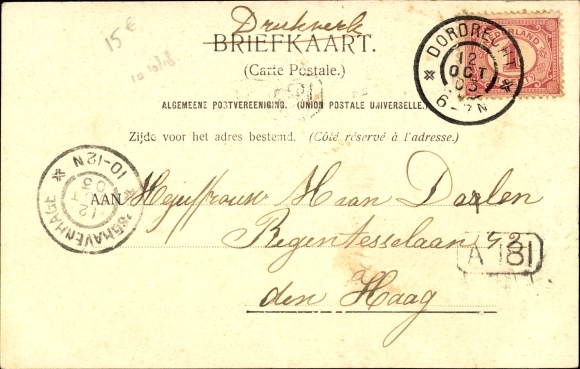 15 €
Drukwerk
BRIEFKAART.
(Carte Postale.)
ALGEMEENE POSTVEREENIGING. (UNION POSTALE UNIVERSELLE.)
Zijde voor het adres bestemd. (Côté réservé à l'adresse.)
DORDRECHT
12
OCT
03
6- N
NEDERLAND
'S GRAVENHAGE
10-12N
12
03
AAN
Mejuffrouw H van Darlen
Regentesselaan
A 181
den Haag